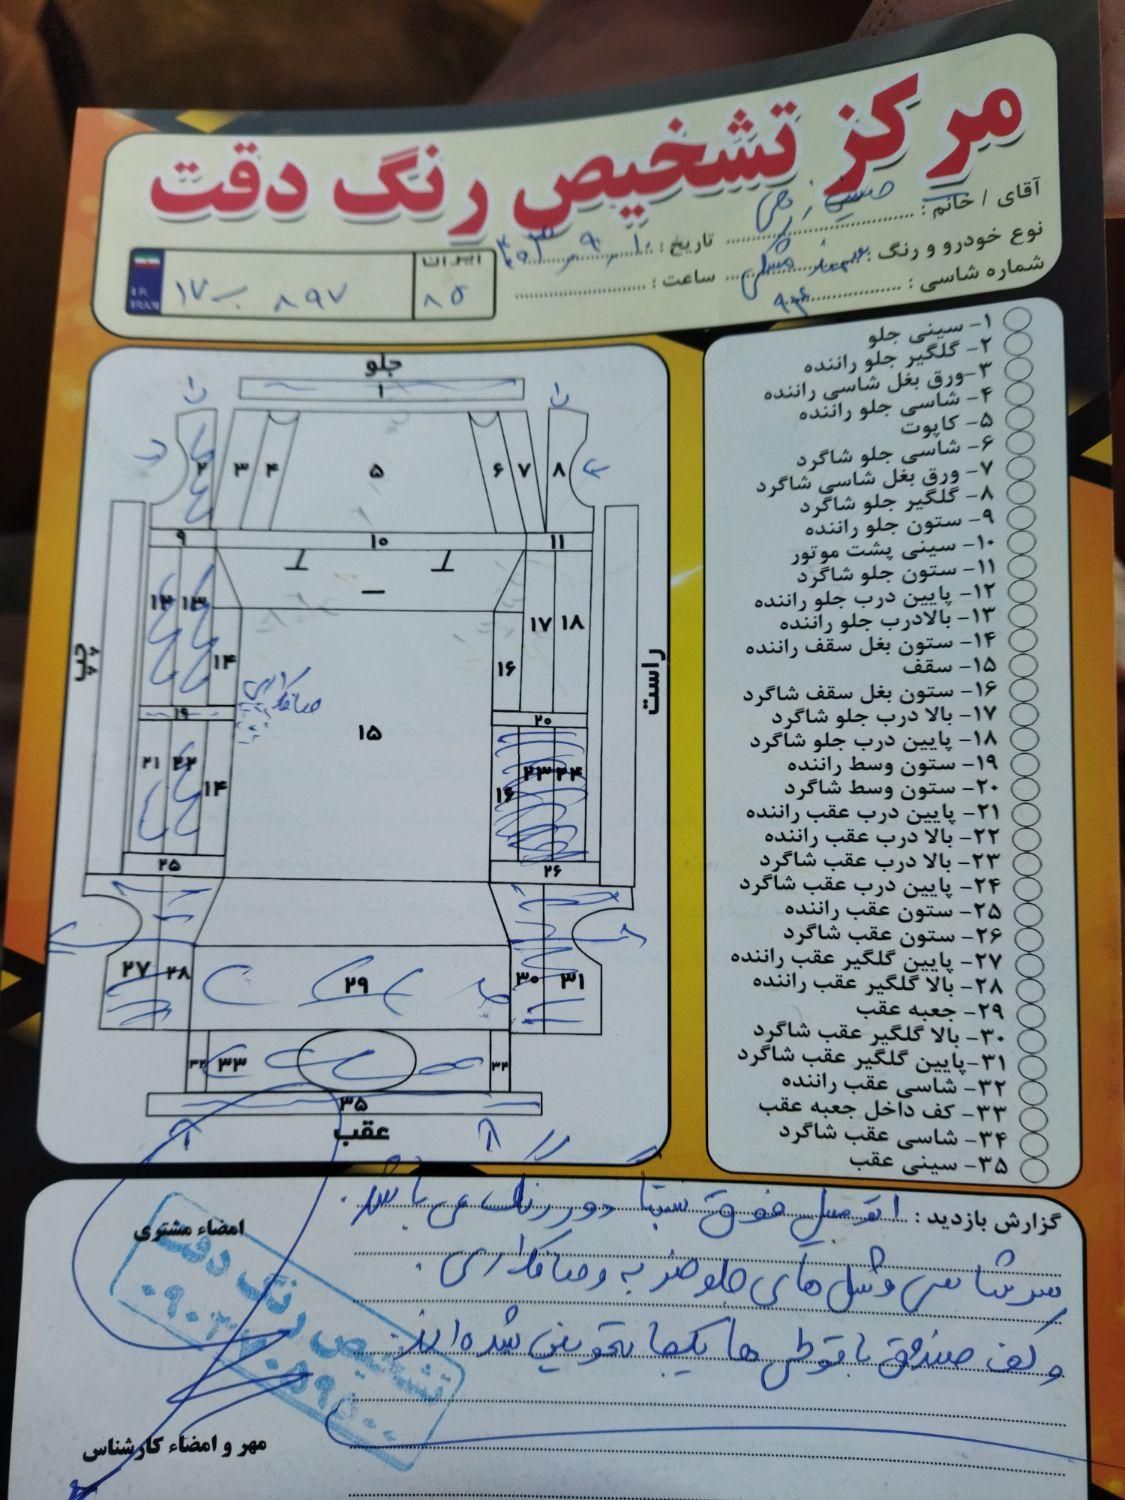 مرکز تشخیص رنگ دقت
آقای / خانم :
تاریخ : ۴۰۳ ، ۹ ، ۱۰
نوع خودرو و رنگ : سمند مشکی
ساعت :
شماره شاسی :
ایران
۸۵
۸۹۷ ب ۱۷
I.R.
IRAN
جلو
۱
۲ ۳ ۴ ۵ ۶ ۷ ۸
۹ ۱۰ ۱۱
۱۲ ۱۳ ۱۴ ۱۶ ۱۷ ۱۸
چپ
راست
صافکاری
۱۹ ۱۵ ۲۰
۲۱ ۲۲ ۱۴ ۱۶ ۲۳ ۲۴
۲۵ ۲۶
۲۷ ۲۸ ۲۹ ۳۰ ۳۱
۳۲ ۳۳ ۳۴
۳۵
عقب
۱- سینی جلو
۲- گلگیر جلو راننده
۳- ورق بغل شاسی راننده
۴- شاسی جلو راننده
۵- کاپوت
۶- شاسی جلو شاگرد
۷- ورق بغل شاسی شاگرد
۸- گلگیر جلو شاگرد
۹- ستون جلو راننده
۱۰- سینی پشت موتور
۱۱- ستون جلو شاگرد
۱۲- پایین درب جلو راننده
۱۳- بالادرب جلو راننده
۱۴- ستون بغل سقف راننده
۱۵- سقف
۱۶- ستون بغل سقف شاگرد
۱۷- بالا درب جلو شاگرد
۱۸- پایین درب جلو شاگرد
۱۹- ستون وسط راننده
۲۰- ستون وسط شاگرد
۲۱- پایین درب عقب راننده
۲۲- بالا درب عقب راننده
۲۳- بالا درب عقب شاگرد
۲۴- پایین درب عقب شاگرد
۲۵- ستون عقب راننده
۲۶- ستون عقب شاگرد
۲۷- پایین گلگیر عقب راننده
۲۸- بالا گلگیر عقب راننده
۲۹- جعبه عقب
۳۰- بالا گلگیر عقب شاگرد
۳۱-پایین گلگیر عقب شاگرد
۳۲- شاسی عقب راننده
۳۳- کف داخل جعبه عقب
۳۴- شاسی عقب شاگرد
۳۵- سینی عقب
گزارش بازدید : اتومبیل فوق نسبتا دور رنگ می باشد .
سرشاسی و شل های جلو ضربه و صافکاری .
و کف صندوق با قوطی ها یکجا تعویض شده اند .
امضاء مشتری
تشخیص رنگ دقت
مهر و امضاء کارشناس